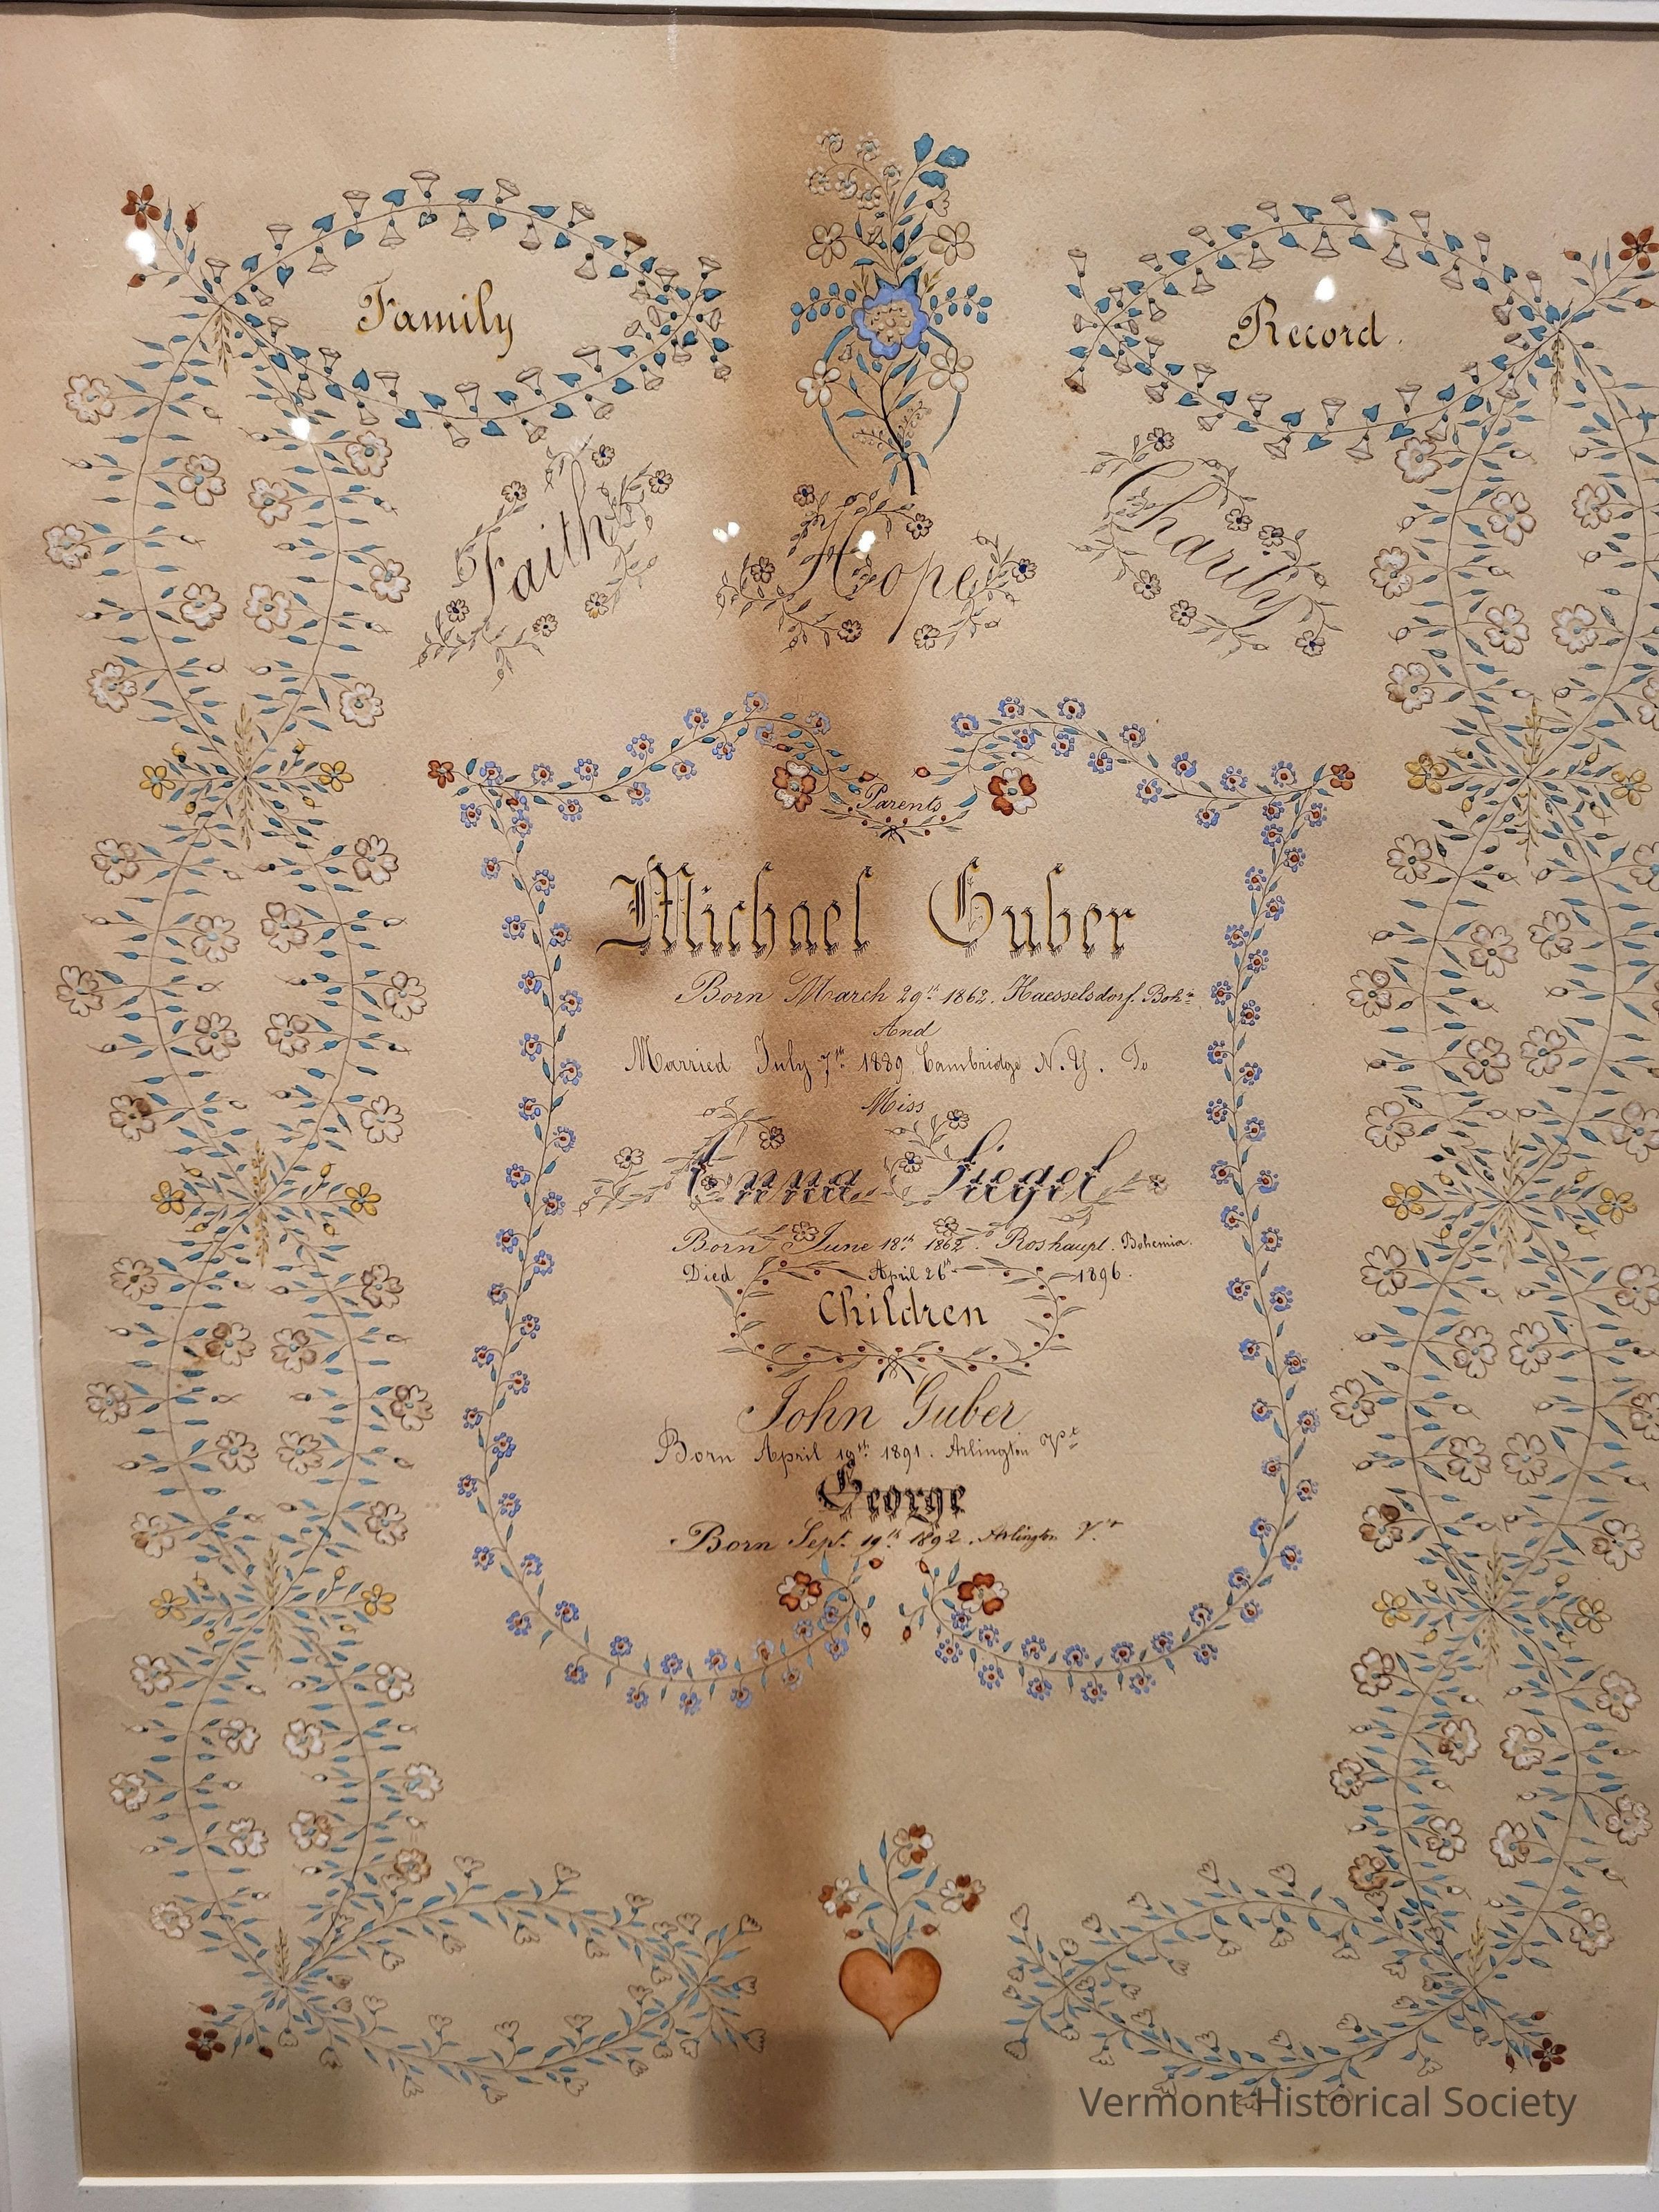 Family Record.
Faith Hope Charity
Parents
Michael Guber
Born March 29th 1862. Haesselsdorf. Boha
And
Married July 7th 1889. Cambridge N.Y. To
Miss
Anna Siegel
Born June 18th 1862. Roshaupt. Bohemia.
Died April 26th 1896.
Children
John Guber
Born April 19th 1891. Arlington Vt
George
Born Sept. 19th 1892. Arlington Vt
Vermont Historical Society